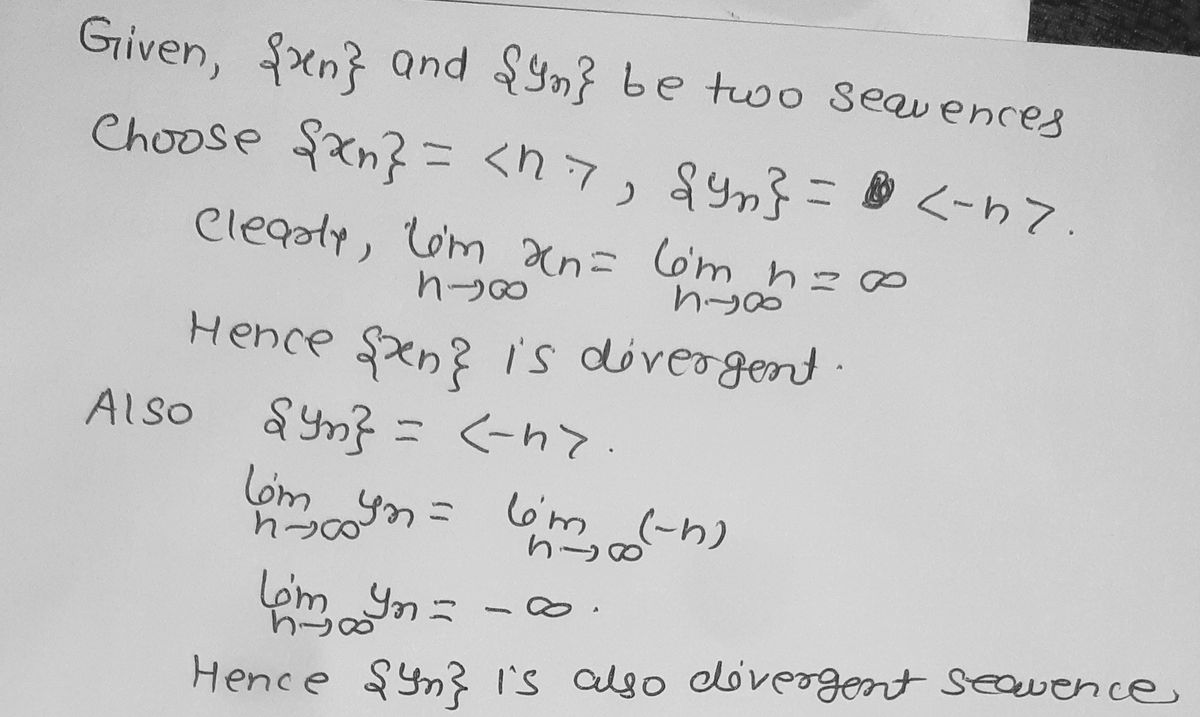 Given, {xn} and {yn} be two sequences
Choose {xn} = <n>, {yn} = <-n>.
Clearly, lim xn = lim n = ∞
n→∞ n→∞
Hence {xn} is divergent.
Also {yn} = <-n>.
lim yn = lim (-n)
n→∞ n→∞
lim yn = -∞.
n→∞
Hence {yn} is also divergent sequence,